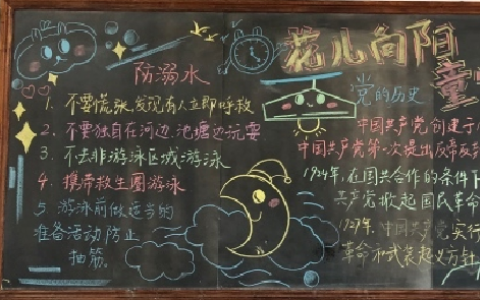 花儿向阳
童
防溺水
1、不要慌张发现有人立即呼救
2、不要独自在河边、池塘边玩耍
3、不去非游泳区域游泳
4、携带救生圈游泳
5、游泳前做适当的
准备活动防止
抽筋。
党的历史
中国共产党创建于
中国共产党第一次提出反帝反
1924年,在国共合作的条件下
共产党掀起国民革命
1927年,中国共产党实行
革命和武装起义方针